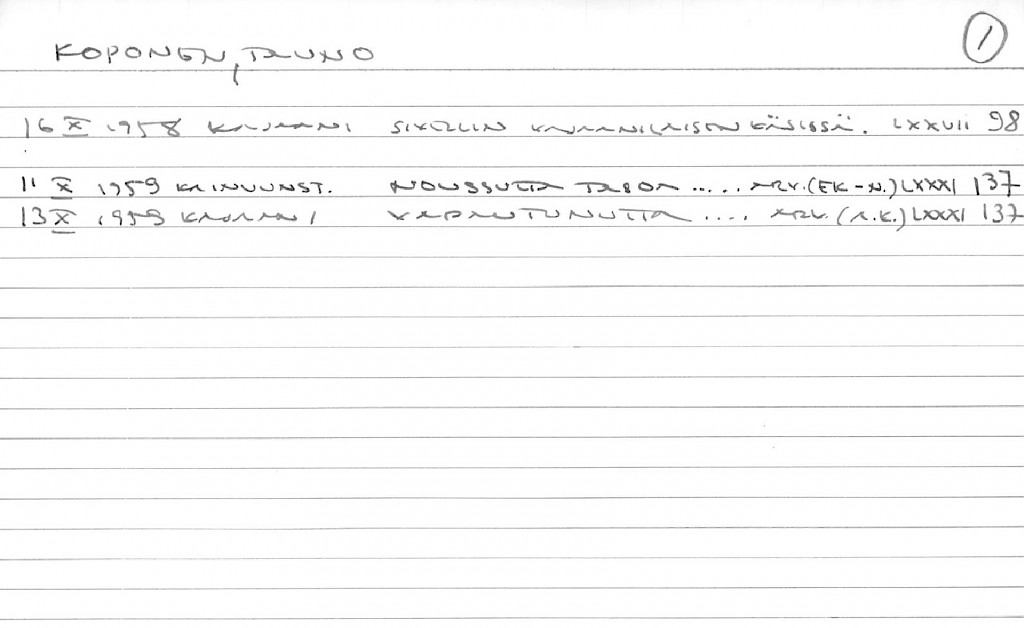 1
KOPONEN, TAUNO
16 X 1958 KAJAANI SIVELLIN KAJAANILAISEN KÄSISSÄ. LXXVII 98
11 X 1959 KAINUUNST. NOUSSUTTA TASOA ..... ARV. (EK-N.) LXXXI 137
13 X 1959 KAJAANI VAPAUTUNUTTA .... ARV. (A.K.) LXXXI 137